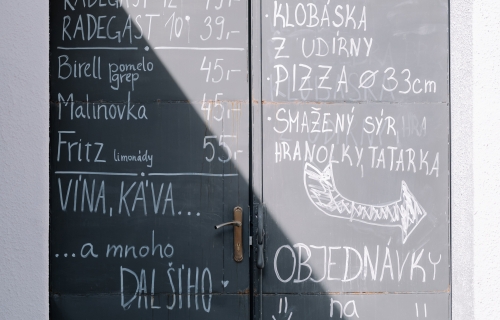 RADEGAST 12°
RADEGAST 10° 39,-
Birell pomelo grep 45,-
Malinovka 45,-
Fritz limonády 55,-
VÍNA, KÁVA...
...a mnoho
DALŠÍHO
· KLOBÁSKA
Z UDÍRNY
· PIZZA Ø 33cm
· SMAŽENÝ SÝR,
HRANOLKY, TATARKA
OBJEDNÁVKY
na